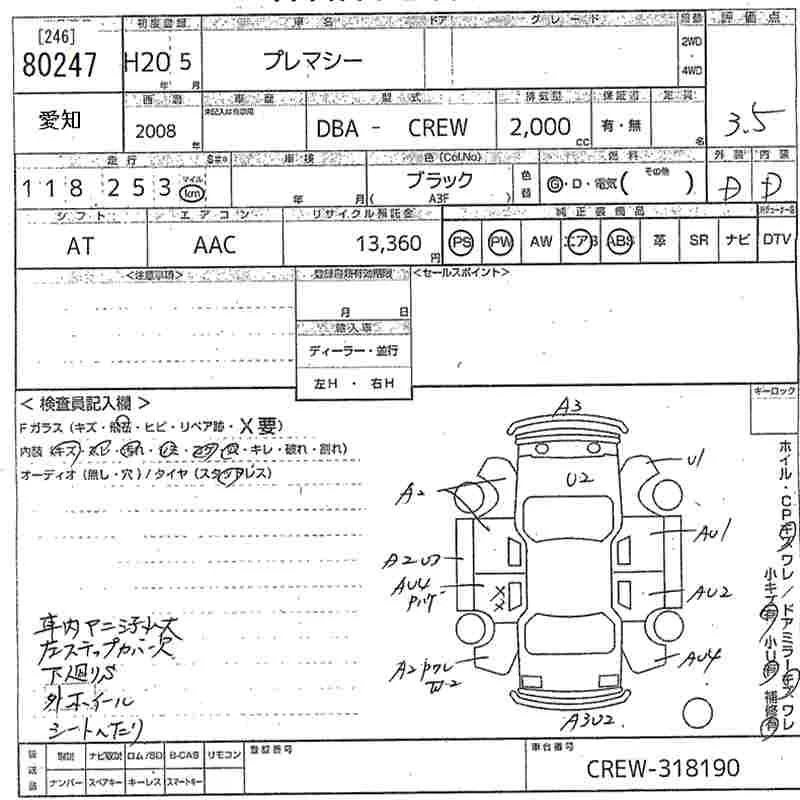 [246]
80247
初度登録
車名
ドア
グレード
評価点
H20 5
年 月
プレマシー
2WD
・
4WD
愛知
車歴
型式
排気量
保証書
定員
2008
年
DBA - CREW
2,000
cc
有・無
名
3.5
走行
車検
色(Col.No)
燃料
外装
内装
118253
マイル
km
年 月
ブラック
( A3F )
色替
G・D・電気( その他 )
D
D
シフト
エアコン
リサイクル預託金
純正装備品
AT
AAC
13,360
円
PS
PW
AW
エアB
ABS
革
SR
ナビ
DTV
<注意事項>
<セールスポイント>
月 日
輸入車
ディーラー・並行
左H ・ 右H
< 検査員記入欄 >
キーロック
Fガラス (キズ・飛石・ヒビ・リペア跡・X要)
・キレ・破れ・割れ)
オーディオ (無し・穴) / タイヤ (スタッドレス)
A3
U2
U1
A2
AU1
AU4
AU2
A2
W2
AU4
A3U2
ホイル・CPキズワレ/ドアミラーキズワレ
小キズ有 小U有 補修有
左ステップカバー欠
下回りS
外ホイール
シートへたり
ナビ取説
ロム/SD
B-CAS
リモコン
登録番号
車台番号
ナンバー
スペアキー
キーレス
スマートキー
CREW-318190